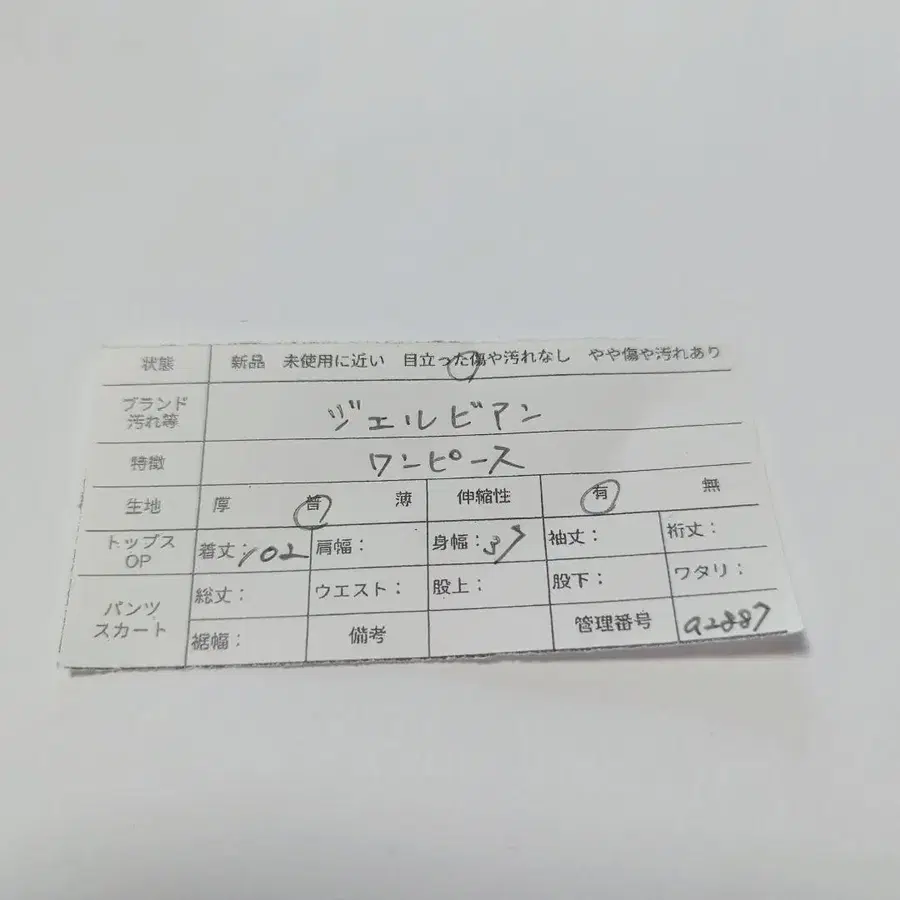 状態 新品 未使用に近い 目立った傷や汚れなし やや傷や汚れあり
ブランド
汚れ等 ジェルビアン
特徴 ワンピース
生地 厚 普 薄 伸縮性 有 無
トップス
OP 着丈:102 肩幅: 身幅:37 袖丈: 裄丈:
パンツ
スカート 総丈: ウエスト: 股上: 股下: ワタリ:
裾幅: 備考 管理番号 a2887